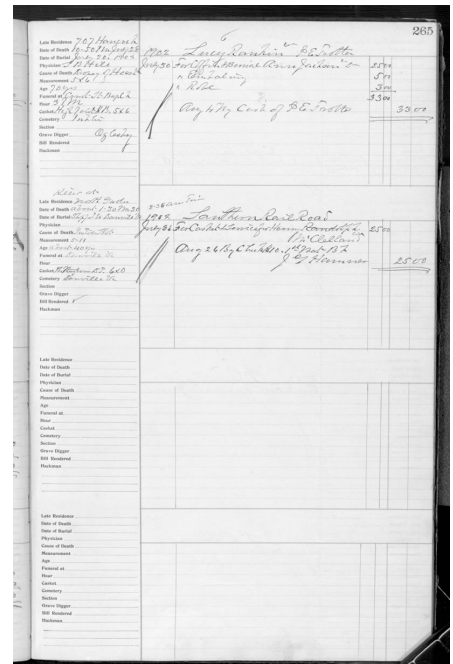 265
Late Residence 707
Date of Death 10-50 Pm July 28
Date of Burial July 30 1902
Physician Hill
Cause of Death Dropsy of Heart
Measurement 5x6
Age 70 yrs
Funeral at Court St Bapt Ch
Hour 3 PM
Casket 5x6
Cemetery
Section
Grave Digger Oglesby
Bill Rendered
Hackman
1902 Lucy Rankin P E Trotter
July 30 For Coffin & Burial 2500
" Embalming 500
" Robe 300
3300
Aug By Cash of P E Trotter 3300
Late Residence
Date of Death about 1-30 Pm
Date of Burial
Physician
Cause of Death
Measurement 5-11
Age about
Funeral at Danville Va
Hour
Casket 6x0
Cemetery Danville Va
Section
Grave Digger
Bill Rendered ✓
Hackman
1902 Southern Rail Road
July 30 For Casket & Services for Henry Randolph 2500
McClelland
Aug 26 By Check
J G Hamner 2500
Late Residence
Date of Death
Date of Burial
Physician
Cause of Death
Measurement
Age
Funeral at
Hour
Casket
Cemetery
Section
Grave Digger
Bill Rendered
Hackman
Late Residence
Date of Death
Date of Burial
Physician
Cause of Death
Measurement
Age
Funeral at
Hour
Casket
Cemetery
Section
Grave Digger
Bill Rendered
Hackman